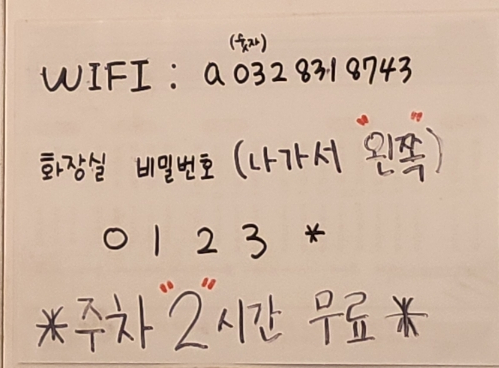 (숫자)
WIFI : a 032 831 8743
화장실 비밀번호 (나가서 "왼쪽")
0 1 2 3 *
*주차 "2"시간 무료*